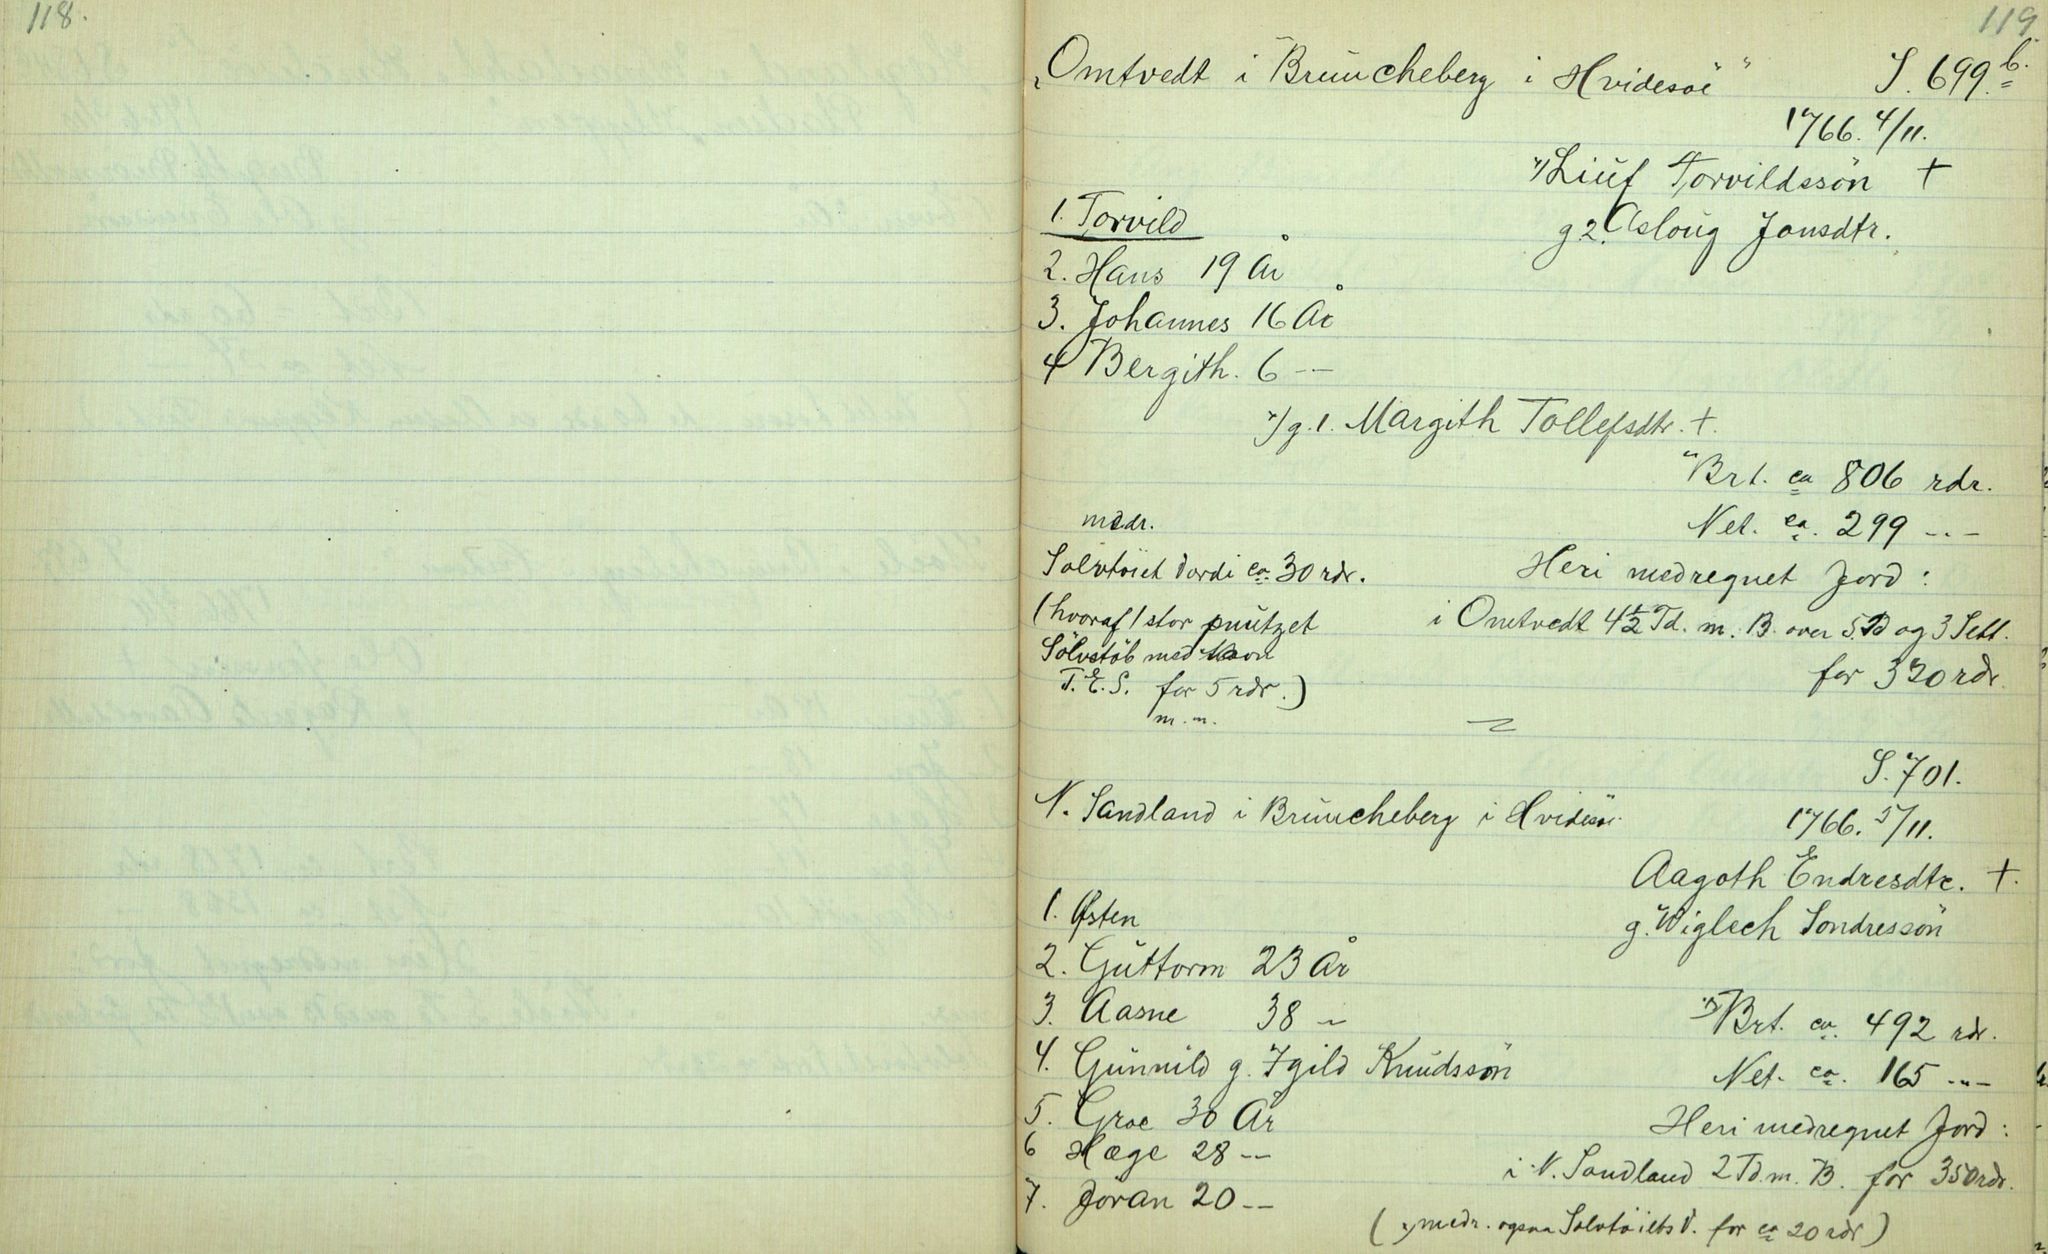 118.
119.
"Omtvedt i Bruncheberg i Hvidesøe" S. 699 b.
1766. 4/11.
x) Liuf Torvildssön +
g 2. Asloug Jonsdtr.
1. Torvild
2. Hans 19 År
3. Johannes 16 År
4 Bergith. 6 --
x) g. 1. Margith Tollefsdtr. +.
"Brt. ca 806 rdr.
Net. ca. 299 ---
medr.
Sølvtøiet Værdi ca. 30 rdr.
(hvoraf 1 stor puutzet
Sölvstöb med Navn
T. E. S. for 5 rdr.)
m. m.
Heri medregnet Jord:
i Omtvedt 4½ Td. m. B. over 5 Td og 3 Sett.
for 330 rdr.
S. 701.
N. Sandland i Bruncheberg i Hvidesøe.
1766. 5/11.
Aagoth Endresdtr. +.
g. Wiglech Sondressön
1. Østen
2. Guttorm 23 År
3. Aasne 38 --
4. Gunnild g. Igild Knudssön
5. Groe 30 År
6 Hæge 28 --
7. Jöran 20 --
x) Brt. ca. 492 rdr.
Net. ca. 165 ---
Heri medregnet Jord:
i N. Sandland 2 Td. m. B. for 350 rdr.
(x) medr. ogsaa Sølvtøiets V. for ca 20 rdr)